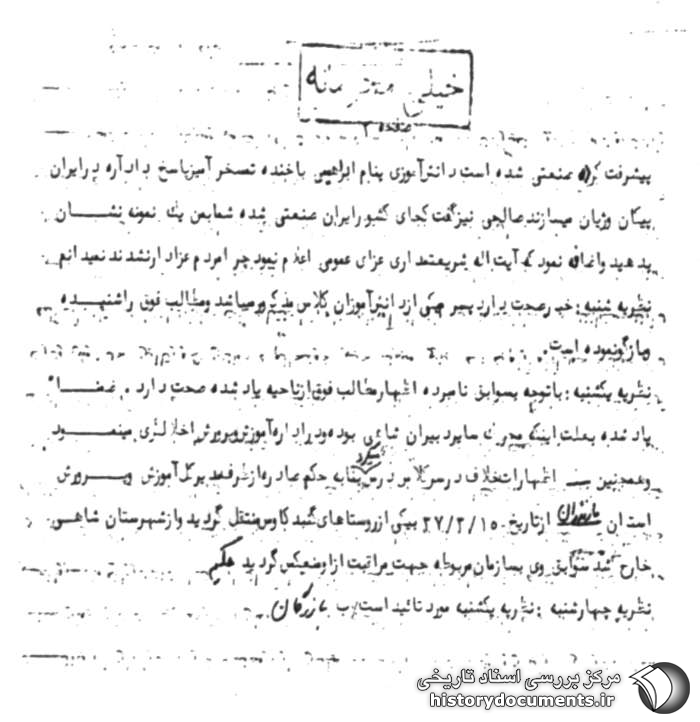 خیلی محرمانه
صفحه ۲
پیشرفت کرده صنعتی شده است دانش‌آموزی بنام ابراهیمی با خنده تمسخر آمیز پاسخ داد آره در ایران
پیکان وژیان میسازند صالحی نیز گفت کجای کشور ایران صنعتی شده شما بمن یک نمونه نشان
بدهید و اضافه نمود که آیت اله شریعتمداری عزای عمومی اعلام نمود چرا مردم عزادار نشدند نمیدانم
نظریه شنبه : خبر صحت دارد یکی از دانش‌آموزان کلاس میباشد و مطالب فوق را شنیده
و بازگو نموده است .
نظریه یکشنبه : با توجه بسوابق نامبرده اظهار مطالب فوق از ناحیه یاد شده صحت دارد . ضمنا"
یاد شده بعلت اینکه محرک سایر دبیران بوده و در اداره آموزش و پرورش اخلالگری مینمود
و همچنین اظهارات خلاف در سر کلاس درس میکرد بنابه حکم صادره از طرف مدیر کل آموزش و پرورش
استان مازندران از تاریخ ۳۷/۲/۱۵ بیکی از روستاهای گنبد کاوس منتقل گردید و از شهرستان شاهی
خارج شد سوابق وی بسازمان مربوطه جهت مراقبت از او منعکس گردید حکیم
نظریه چهارشنبه : نظریه یکشنبه مورد تائید است ب بازرگان
مرکز بررسی اسناد تاریخی
historydocuments.ir